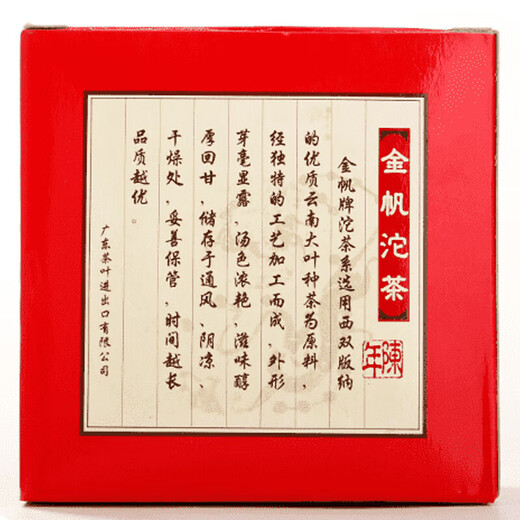 金帆沱茶
陳年
金帆牌沱茶系选用西双版纳
的优质云南大叶种茶为原料，
经独特的工艺加工而成，外形
芽毫显露，汤色浓艳，滋味醇
厚回甘，储存于通风、阴凉、
干燥处，妥善保管，时间越长
品质越优。
广东茶叶进出口有限公司